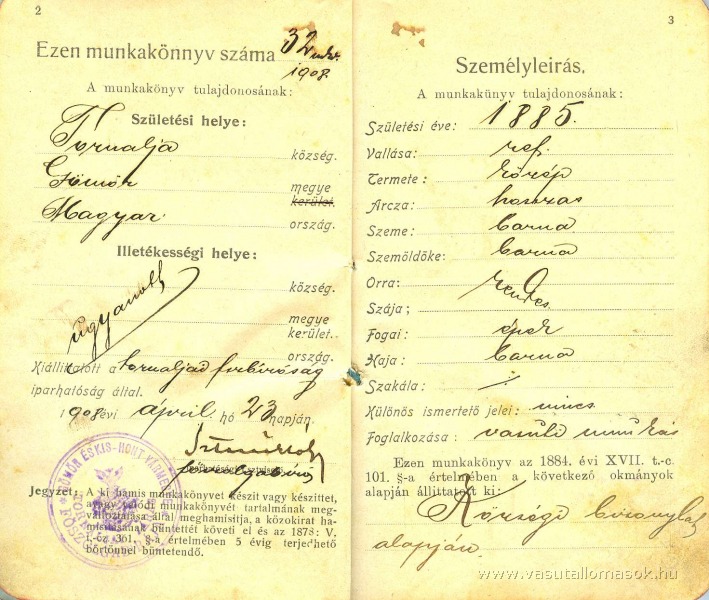 2
Ezen munkakönnyv száma 32
1908
A munkakönyv tulajdonosának:
Születési helye:
Tornalja község.
Gömör megye
kerület.
Magyar ország.
Illetékességi helye:
község.
ugyanott megye
kerület.
ország.
Kiállíttatott a tornaljai főbíróság
iparhatóság által.
1908 évi április hó 23 napján.
Jegyzet: A ki hamis munkakönyvet készit vagy készittet,
a vagy valódi munkakönyvét tartalmának meg-
változtatása által meghamisítja, a közokirat ha-
misitásának büntettét követi el és az 1878: V.
t.-cz. 391. §-a értelmében 5 évig terjedhető
börtönnel büntetendő.
GÖMÖR ÉS KIS-HONT VÁRMEGYE
3
Személyleirás.
A munkakünyv tulajdonosának:
Születési éve: 1885.
Vallása: ref.
Termete: közép
Arcza: hosszas
Szeme: barna
Szemöldöke: barna
Orra: rendes
Szája;
Fogai: épek
Haja: barna
Szakála: —
Különös ismertető jelei: nincs
Foglalkozása: vasuti munkás
Ezen munkakönyv az 1884. évi XVII. t.-c.
101. §-a értelmében a következő okmányok
alapján állíttatott ki:
Községi bizonylat
alapján.
www.vasutallomasok.hu